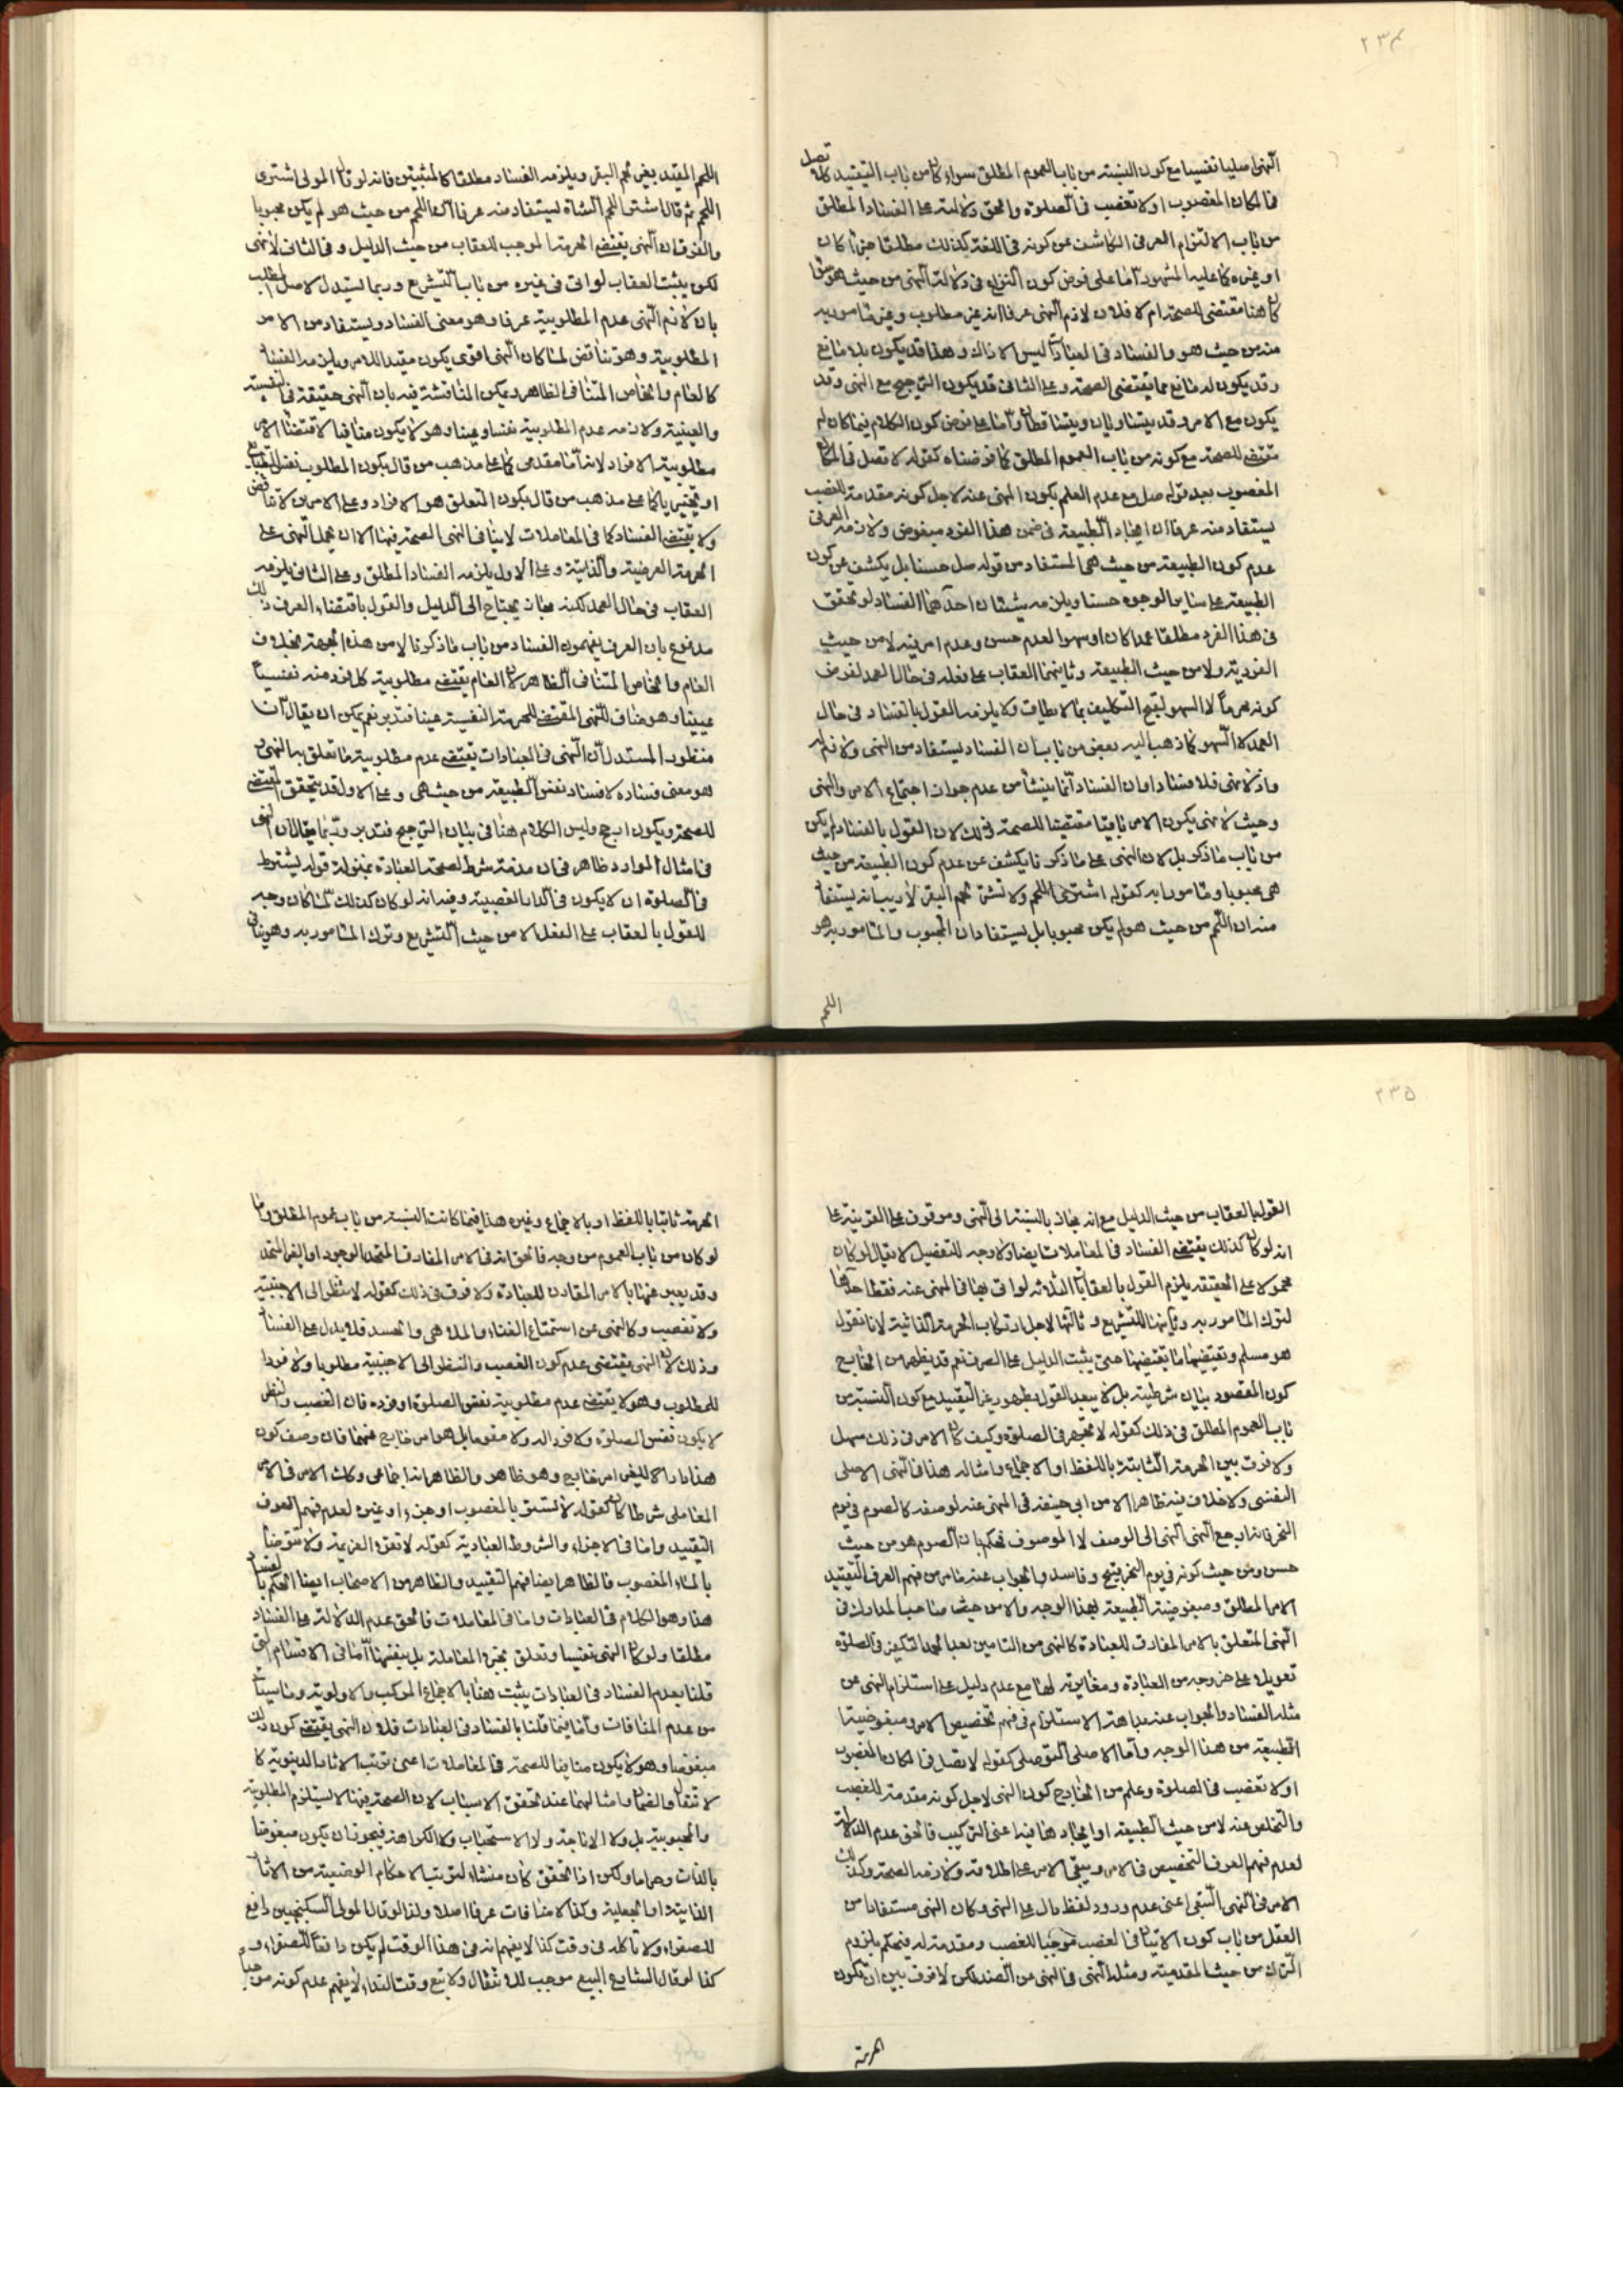 ٢٣٤
النهى اصليا نفسيا مع كون النسبته من باب العموم المطلق سواء كان من باب التقييد كلا تصل
فى المكان المغصوب او لا تغصب فى الصلوة والحق دلالته على الفساد المطلق
من باب الالتزام العرفى الكاشف عن كونه فى اللغة كذلك مطلقا جزءا كان
او غيره كما عليه المشهور امّا على فرض كون النزاع فى دلالة النهى من حيث هو سواء
كان هنا مقتضى للصحة ام لا فلان لازم النهى عرفا انه غير مطلوب وغير مامور به
منه من حيث هو والفساد فى العبادات ليس الا ذاك وهذا قد يكون بلا مانع
وقد يكون له مانع مما يقتضى الصحة وعلى الثانى قد يكون الترجيح مع النهى وقد
يكون مع الامر وقد يتساويان ويتساقطان وامّا على فرض كون الكلام فيما كان له
مقتضى للصحة مع كونه من باب العموم المطلق كما فرضناه كقوله لا تصل فى المكان
المغصوب بعد قوله صل مع عدم العلم بكون النهى عنه لاجل كونه مقدمة للغصب
يستفاد منه عرفا ان ايجاد الطبيعة فى ضمن هذا الفرد مبغوض ولازمه العرفى
عدم كون الطبيعة من حيث هى المستفاد من قوله صل حسنا بل يكشف عن كون
الطبيعة على ساير الوجوه حسنا ويلزمه شيئان احدهما الفساد لو تحقق
فى هذا الفرد مطلقا عمدا كان او سهوا لعدم حسن وعدم امر فيه لا من حيث
الفردية ولا من حيث الطبيعة وثانيهما العقاب على فعله فى حال العمد لفرض
كونه محرماً لا السهو لقبح التكليف بما لا يطاق ولا يلزمه القول بالفساد فى حال
العمد لا السهو كما ذهب اليه بعض من باب ان الفساد يستفاد من النهى ولازم له
واذ لا نهى فلا فساد او ان الفساد انّما ينشأ من عدم جواز اجتماع الامر والنهى
وحيث لا نهى يكون الامر باقيا مقتضيا للصحة وذلك لان القول بالفساد لم يكن
من باب ما ذكر بل لان النهى على ما ذكرنا يكشف عن عدم كون الطبيعة من حيث
هى محبوبا ومامورا به كقوله اشتر لى اللحم ولا تشتر لحم البقر لا ريب انه يستفاد
منه ان اللحم من حيث هو لم يكن محبوبا بل يستفاد ان المحبوب والمامور به هو
اللحم
اللحم المقيد بغير لحم البقر ويلزمه الفساد مطلقا كالمثبتين فانه لو قال المولى اشترى
اللحم ثم قال اشتر اللحم الشاة ليستفاد منه عرفا ان اللحم من حيث هو لم يكن محبوبا
والفرق ان النهى يقتضى الحرمة الموجب للعقاب من حيث الدليل وفى الثانى لا نهى
لكن يثبت العقاب لو اتى فى غيره من باب التشريع وربما يستدل لاصل المطلب
بان لازم النهى عدم المطلوبية عرفا وهو معنى الفساد ويستفاد من الامر
المطلوبية وهو يناقض لما كان النهى اقوى يكون مقيدا للامر ويلزمه الفساد
كالعام والخاص المتنافى الظاهر ويمكن المناقشة فيه بان النهى حقيقة فى النفسية
والعينية ولازمه عدم المطلوبية نفسا وعينا وهو لا يكون منافيا لاقتضاء الامر
مطلوبية الافراد لانه امّا مقدمى كما على مذهب من قال بكون المطلوب نفس الطبيعة
او تخييريا كما على مذهب من قال بكون المتعلق هو الافراد وعلى الامرين لا تناقض
ولا يقتضى الفساد كما فى المعاملات لا ينافى النهى الصحة فيها الا ان يحمل النهى على
الحرمة العرضية والذاتية وعلى الاول يلزمه الفساد المطلق وعلى الثانى يلزمه
العقاب فى حال العمد لكنه مجاز يحتاج الى الدليل والقول باقتضاء العرف ذلك
مدفوع بان العرف يفهمون الفساد من باب ما ذكرنا لا من هذه الجهة بخلاف
العام والخاص المتنافى الظاهر لان العام يقتضى مطلوبية كل فرد منه نفسياً
عينيا وهو مناف للنهى المقتضى للحرمة النفسية عينا فتدبر نعم يمكن ان يقال ان
منظور المستدل ان النهى فى العبادات يقتضى عدم مطلوبية ما تعلق به النهى و
هو معنى فساده لا فساد نفس الطبيعة من حيث هى وعلى الاول قد يتحقق المقتضى
للصحة ويكون ارجح وليس الكلام هنا فى بيان الترجيح فتدبر وربّما يقال ان النهى
فى امثال الموارد ظاهر فى ان عدمه شرط لصحة العبادة بمنزلة قوله يشترط
فى الصلوة ان لا يكون فى الدار الغصبية وفيه انه لو كان كذلك لما كان وجه
للقول بالعقاب على الفعل الا من حيث التشريع وترك المامور به وهو ينافى
٢٣٥
القول بالعقاب من حيث الدليل مع انه مجاز بالنسبة الى النهى وموقوف على القرينة على
انه لو كان كذلك يقتضى الفساد فى المعاملات ايضا ولا وجه للتفصيل لا يقال لو كان
محمولا على الحقيقة يلزم القول بالعقابات الثلاثة لو اتى بها فى المنهى عنه فقط احدها
لترك المامور به وثانيها للتشريع وثالثها لاجل ارتكاب الحرمة الذاتية لانا نقول
هو مسلم ونقتضيها ما يقتضيها حتى يثبت الدليل على الصرف نعم قد يظهر من الخارج
كون المقصود بيان شرطيته بل لا يبعد القول بظهور غير التقييد مع كون النسبة من
باب العموم المطلق فى ذلك كقوله لا تجهر فى الصلوة وكيف كان الامر فى ذلك سهل
ولا فرق بين الحرمة الثابتة باللفظ او الاجماع وامثاله هذا فى النهى الاصلى
النفسى ولا خلاف فيه ظاهرا الا من ابى حنيفة فى المنهى عنه لوصفه كالصوم فى يوم
النحر فانه ارجع النهى الى الوصف لا الموصوف فحكم بان الصوم هو من حيث
حسن ومن حيث كونه فى يوم النحر قبيح وفاسد والجواب عنه ما مر من فهم العرف التقييد
الامر المطلق ومبغوضية الطبيعة بهذا الوجه والا من حيث صاحب المدارك فى
النهى المتعلق بالامر المفارق للعبادة كالنهى من التامين بعد الحمد لتكبيره فى الصلوة
تعويلا على خروجه من العبادة ومغايرته لها مع عدم دليل على استلزام النهى عن
مثله الفساد والجواب عنه بداهة الاستلزام فى فهم تخصيص الامر ومبغوضية
الطبيعة من هذا الوجه وامّا الاصلى التوصلى كقوله لا تصل فى المكان المغصوب
او لا تغصب فى الصلوة وعلم من الخارج كون النهى لاجل كونه مقدمة للغصب
والتخلص منه لا من حيث الطبيعة او ايجادها فيه اعنى التركيب فالحق عدم الدلالة
لعدم فهم العرف التخصيص فى الامر ويبقى الامر على اطلاقه ولازمه الصحة وكذلك
الامر فى النهى التبعى اعنى عدم ورود لفظ دال على النهى وكان النهى مستفادا من
العقل من باب كون الاتيان فى الغصب موجبا للغصب ومقدمة له فيحكم بلزوم
الترك من حيث المقدمية ومثله النهى فى النهى عن الضد لكن لا فرق بين ان يكون
الحرمة
الحرمة ثابتا باللفظ او بالاجماع وغيره هذا فيما كانت النسبة من باب عموم المطلق واما
لو كان من باب العموم من وجه فالحق انه فى الامر المفارق المتحد الوجود او الغير المتحد
وقد يعبر عنها بالامر المقارن للعبادة ولا فرق فى ذلك كقوله لا تنظر الى الاجنبية
ولا تغصب وكالنهى عن استماع الغناء والملاهى والحسد فلا يدل على الفساد
وذلك لان النهى يقتضى عدم كون الغصب والنظر الى الاجنبية مطلوبا ولا فردا
للمطلوب وهو لا يقتضى عدم مطلوبية نفس الصلوة او فرده فان الغصب والنظر
لا يكون نفس الصلوة ولا فرد اله ولا مقوما بل هو امر خارج عنهما فان وصف كون
هذا دارا للغير امر خارج وهو ظاهر والظاهر انه اجماعى وكذا الامر فى الامر
المعاملى شرطا كان كقوله لا تستبق بالمغصوب او جزءا وغيره لعدم فهم العرف
التقييد واما فى الاجزاء والشروط العبادية كقوله لا تقرء العزيمة ولا تتوضأ
بالماء المغصوب فالظاهر ايضا فهم التقييد والظاهر من الاصحاب ايضا الحكم بالفساد
هذا وهو الكلام فى العبادات واما فى المعاملات فالحق عدم الدلالة على الفساد
مطلقا ولو كان النهى نفسيا وتعلق بجزء المعاملة بل بنفسها امّا فى الاقسام التى
قلنا بعدم الفساد فى العبادات يثبت هنا بالاجماع المركب والاولوية وما سيأتى
من عدم المنافات وامّا فيما قلنا بالفساد فى العبادات فلان النهى يقتضى كون ذلك
مبغوضا وهو لا يكون منافيا للصحة فى المعاملات اعنى ترتب الاثار الدنيوية كا
لانتقال والضمان وامثالهما عند تحقق الاسباب لان الصحة فيها لا يستلزم المطلوبية
والمحبوبية بل ولا الاباحة ولا الاستحباب ولا الكراهة فيجوز ان يكون مبغوضا
بالذات وحراما ولكن اذا تحقق كان منشاء لترتب الاحكام الوضعية من الاثار
الذاتية او الجعلية وكذا لا منافات عرفا اصلا ولذا لو قال المولى السكنجبين دافع
للصفراء ولا تاكله فى وقت كذا لا يفهم انه فى هذا الوقت لم يكن دافعاً للصفراء و
كذا لو قال الشارع البيع موجب للانتقال ولا تبع وقت النداء لا يفهم عدم كونه موجبا